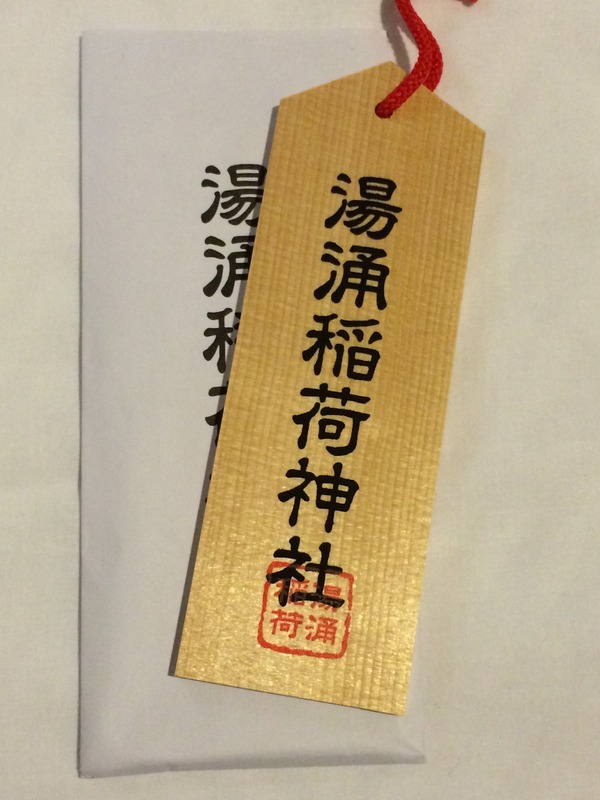 湯涌稲荷神社
湯涌
稲荷
湯涌稲